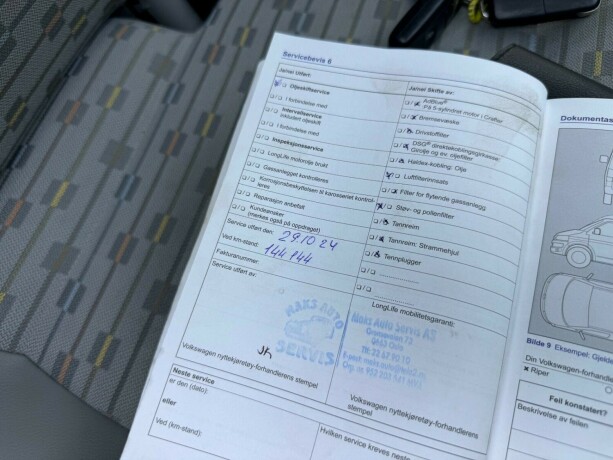 Servicebevis 6
Ja/nei Utført:
Oljeskiftservice
I forbindelse med
Intervallservice
inkludert oljeskift
I forbindelse med
Inspeksjonsservice
LongLife motorolje brukt
Gassanlegget kontrolleres
Korrosjonsbeskyttelsen til karosseriet kontrol-
leres
Reparasjon anbefalt
Kundeønsker
(merkes også på oppdraget)
Service utført den: 29.10 24
Ved km-stand: 144 144
Fakturanummer:
Service utført av:
MAKS AUTO
SERVIS
Volkswagen nyttekjøretøy-forhandlerens stempel
Neste service
er den (dato):
eller
Ved (km-stand):
Ja/nei Skifte av:
AdBlue®
På 5-sylindret motor i Crafter
Bremsevæske
Drivstoffilter
DSG® direktekoblingsgirkasse:
Girolje og ev. oljefilter
Haldex-kobling: Olje
Luftfilterinnsats
Filter for flytende gassanlegg
Støv- og pollenfilter
Tannreim
Tannreim: Strammehjul
Tennplugger
LongLife mobilitetsgaranti:
Maks Auto Servis AS
0663 Oslo
Volkswagen nyttekjøretøy-forhandlerens
stempel
Hvilken service kreves neste
Dokumentas
Bilde 9 Eksempel: Gjelde
Din Volkswagen-forhand
× Riper
Feil konstatert?
Beskrivelse av feilen